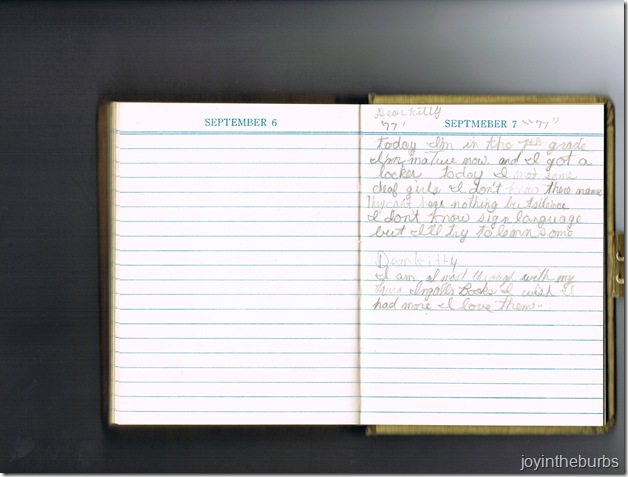 SEPTEMBER 6
Dear Kitty
'77'
SEPTMEBER 7 "77"
today I'm in the 7th grade
I'm mature now and I got a
locker today I met some
deaf girls I don't know there name
they can't hear nothing but silence
I don't know sign language
but I'll try to learn some
Dear Kitty
I am almost through with my
Ingalls Books I wish I
had more I love them.
joyintheburbs